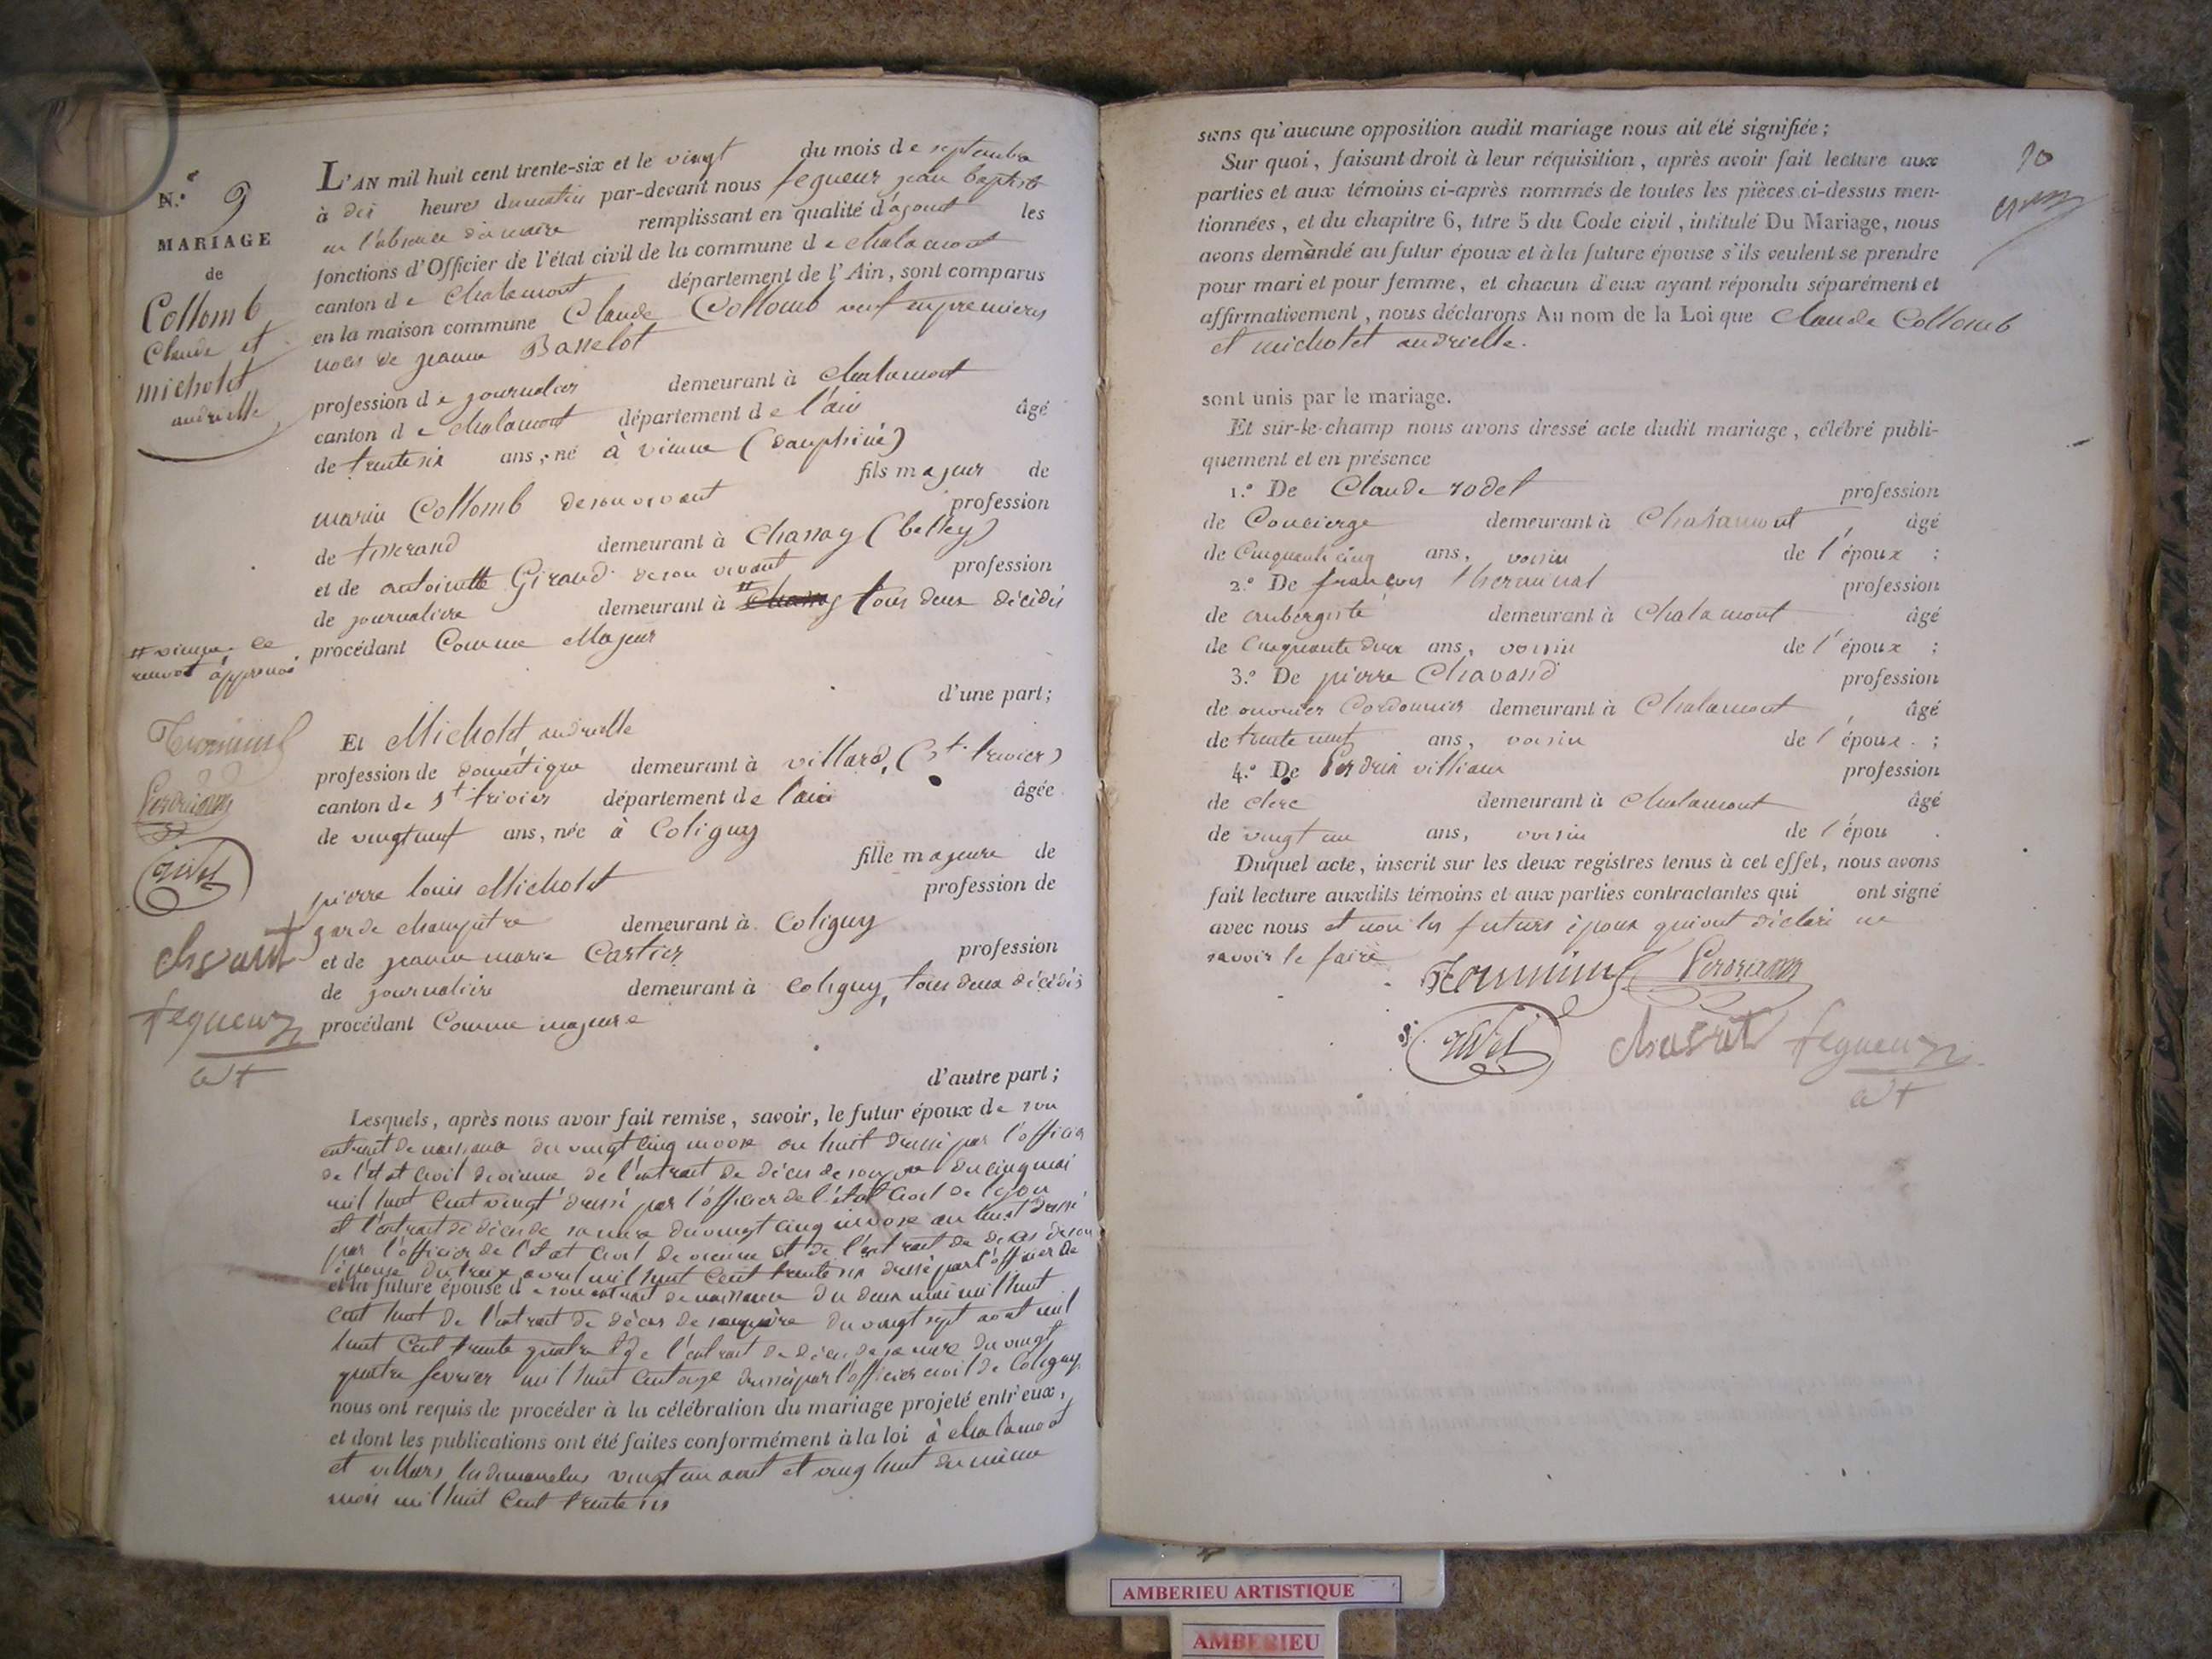 N.º 9
MARIAGE
de
Collomb
Claude et
micholet
audrielle
L'AN mil huit cent trente-six et le vingt du mois de septembre
à dix heures du matin par-devant nous fegueux jean baptiste
en l'absence du maire remplissant en qualité d'ajoint les
fonctions d'Officier de l'état civil de la commune de chalamont
canton de chalamont département de l'Ain, sont comparus
en la maison commune Claude Collomb veuf en premieres
noces de jeanne Basselot
profession de journalier demeurant à chalamont
canton de chalamont département de l'ain âgé
de trente six ans, né à vienne (dauphiné)
fils majeur de
marin Collomb de son vivant profession
de tisserand demeurant à Chassay (belley)
et de antoinette Giraud de son vivant profession
de journaliere demeurant à # tous deux décédés
procédant Comme Majeur
# vienne ce
renvoi approuvé
d'une part;
Et Micholet audrielle
profession de doméstique demeurant à villard, (St. trivier)
canton de St trivier département de l'ain âgée
de vingt neuf ans, née à Coligny
fille majeure de
pierre louis Micholet profession de
garde champêtre demeurant à Coligny
et de jeanne marie Cartier profession
de journalière demeurant à coligny, tous deux décédés
procédant Comme majeure
rodel
fegueux
adt
d'autre part;
Lesquels, après nous avoir fait remise, savoir, le futur époux de son
extrait de naissance du vingt cinq nivose an huit dressé par l'officier
de l'état civil de vienne de l'extrait de décès de son père du cinq mai
mil huit cent vingt dressé par l'officier de l'état civil de lyon
et l'extrait de décès de sa mere du vingt cinq nivose an huit dressé
par l'officier de l'état civil de vienne et de l'extrait de décès de son
épouse du treize avril mil huit cent trente six dressé par l'officier de
et la future épouse de son extrait de naissance du deux mai mil huit
cent huit de l'extrait de décès de son père du vingt sept août mil
huit cent trente quatre et de l'extrait de décès de sa mere du vingt
quatre fevrier mil huit cent onze dressé par l'officier civil de Coligny
nous ont requis de procéder à la célébration du mariage projeté entr'eux,
et dont les publications ont été faites conformément à la loi à chalamont
et villars les dimanches vingt un août et vingt huit du même
mois mil huit cent trente six
sans qu'aucune opposition audit mariage nous ait été signifiée;
Sur quoi, faisant droit à leur réquisition, après avoir fait lecture aux
parties et aux témoins ci-après nommés de toutes les pièces ci-dessus men-
tionnées, et du chapitre 6, titre 5 du Code civil, intitulé Du Mariage, nous
avons demandé au futur époux et à la future épouse s'ils veulent se prendre
pour mari et pour femme, et chacun d'eux ayant répondu séparément et
affirmativement, nous déclarons Au nom de la Loi que Claude Collomb
et micholet audrielle.
sont unis par le mariage.
Et sur-le-champ nous avons dressé acte dudit mariage, célébré publi-
quement et en présence
1.º De Claude rodet profession
de Concierge demeurant à Chalamont âgé
de Cinquante cinq ans, voisin de l'époux ;
2.º De françois profession
de aubergiste demeurant à Chalamont âgé
de Cinquante deux ans, voisin de l'époux ;
3.º De pierre Chavand profession
de ouvrier Cordonnier demeurant à Chalamont âgé
de trente neuf ans, voisin de l'époux ;
4.º De Perdrix villiam profession
de clerc demeurant à chalamont âgé
de vingt un ans, voisin de l'épou
Duquel acte, inscrit sur les deux registres tenus à cet effet, nous avons
fait lecture auxdits témoins et aux parties contractantes qui ont signé
avec nous et non les futurs époux qui ont déclaré ne
savoir le faire
rodel
fegueux
adt
AMBERIEU ARTISTIQUE
AMBERIEU